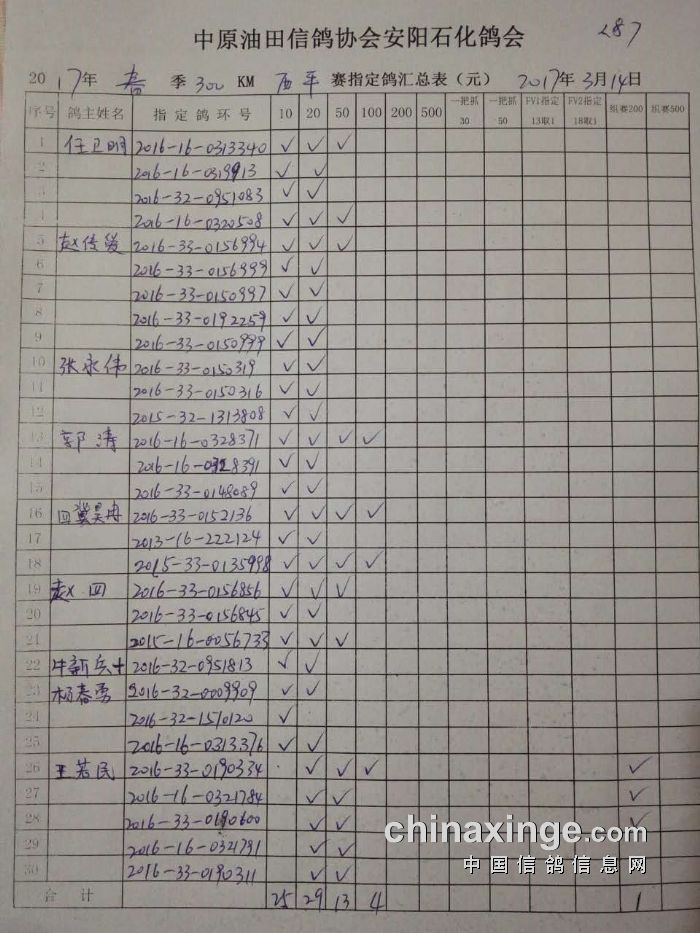 中原油田信鸽协会安阳石化鸽会
287
2017年 春 季 300 KM 西平 赛指定鸽汇总表（元） 2017年3月14日
序号 鸽主姓名 指定鸽环号 10 20 50 100 200 500 一把抓30 一把抓50 FV1指定13取1 FV2指定18取1 组赛200 组赛500
1 任卫明 2016-16-0313340 ✓ ✓ ✓
2 2016-16-0319913 ✓ ✓
3 2016-32-0951083 ✓ ✓
4 2016-16-0320508 ✓ ✓ ✓
5 赵传爱 2016-33-0156994 ✓ ✓ ✓
6 2016-33-0156999 ✓ ✓
7 2016-33-0150997 ✓ ✓
8 2016-33-0192259 ✓ ✓
9 2016-33-0150999 ✓ ✓
10 张永伟 2016-33-0150319 ✓ ✓
11 2016-33-0150316 ✓ ✓
12 2015-32-1313808 ✓ ✓
13 郭涛 2016-16-0328371 ✓ ✓ ✓ ✓
14 2016-16-0328391 ✓ ✓
15 2016-33-0148089 ✓ ✓
16 冀昊冉 2016-33-0152136 ✓ ✓ ✓ ✓
17 2013-16-222124 ✓ ✓
18 2015-33-0135998 ✓ ✓ ✓ ✓
19 赵四 2016-33-0156856 ✓ ✓ ✓
20 2016-33-0156845 ✓ ✓
21 2015-16-0056733 ✓ ✓ ✓
22 牛新兵 2016-32-0951813 ✓ ✓
23 杨春勇 2016-32-0009909 ✓ ✓
24 2016-32-1510120 ✓
25 2016-16-0313376 ✓ ✓
26 王若民 2016-33-0190334 ✓ ✓ ✓ ✓
27 2016-16-0321784 ✓ ✓ ✓
28 2016-33-0190600 ✓ ✓ ✓
29 2016-16-0321791 ✓ ✓
30 2016-33-0190311 ✓ ✓
合计 25 29 13 4 1
chinaxinge.com
中国信鸽信息网